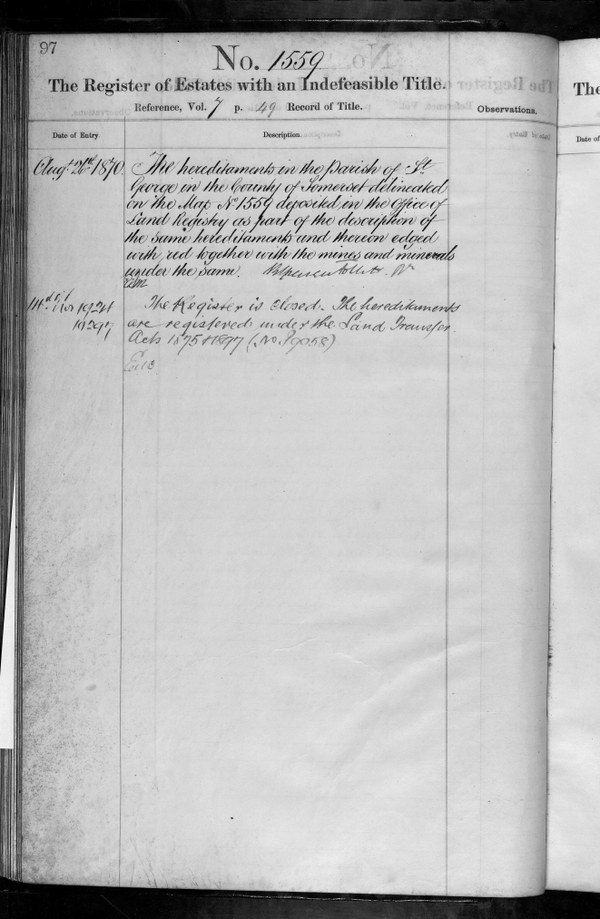 97
No. 1559
The Register of Estates with an Indefeasible Title.
Reference, Vol. 7 p. 49 Record of Title.
Observations.
Date of Entry.
Description.
Augt. 26th 1870.
The hereditaments in the Parish of St.
George in the County of Somerset delineated
on the Map No. 1559 deposited in the Office of
Land Registry as part of the description of
the same hereditaments and thereon edged
with red together with the mines and minerals
under the same.
14th Novr 1924
The Register is closed. The hereditaments
are registered under the Land Transfer
Acts 1875 & 1897
The
Date of